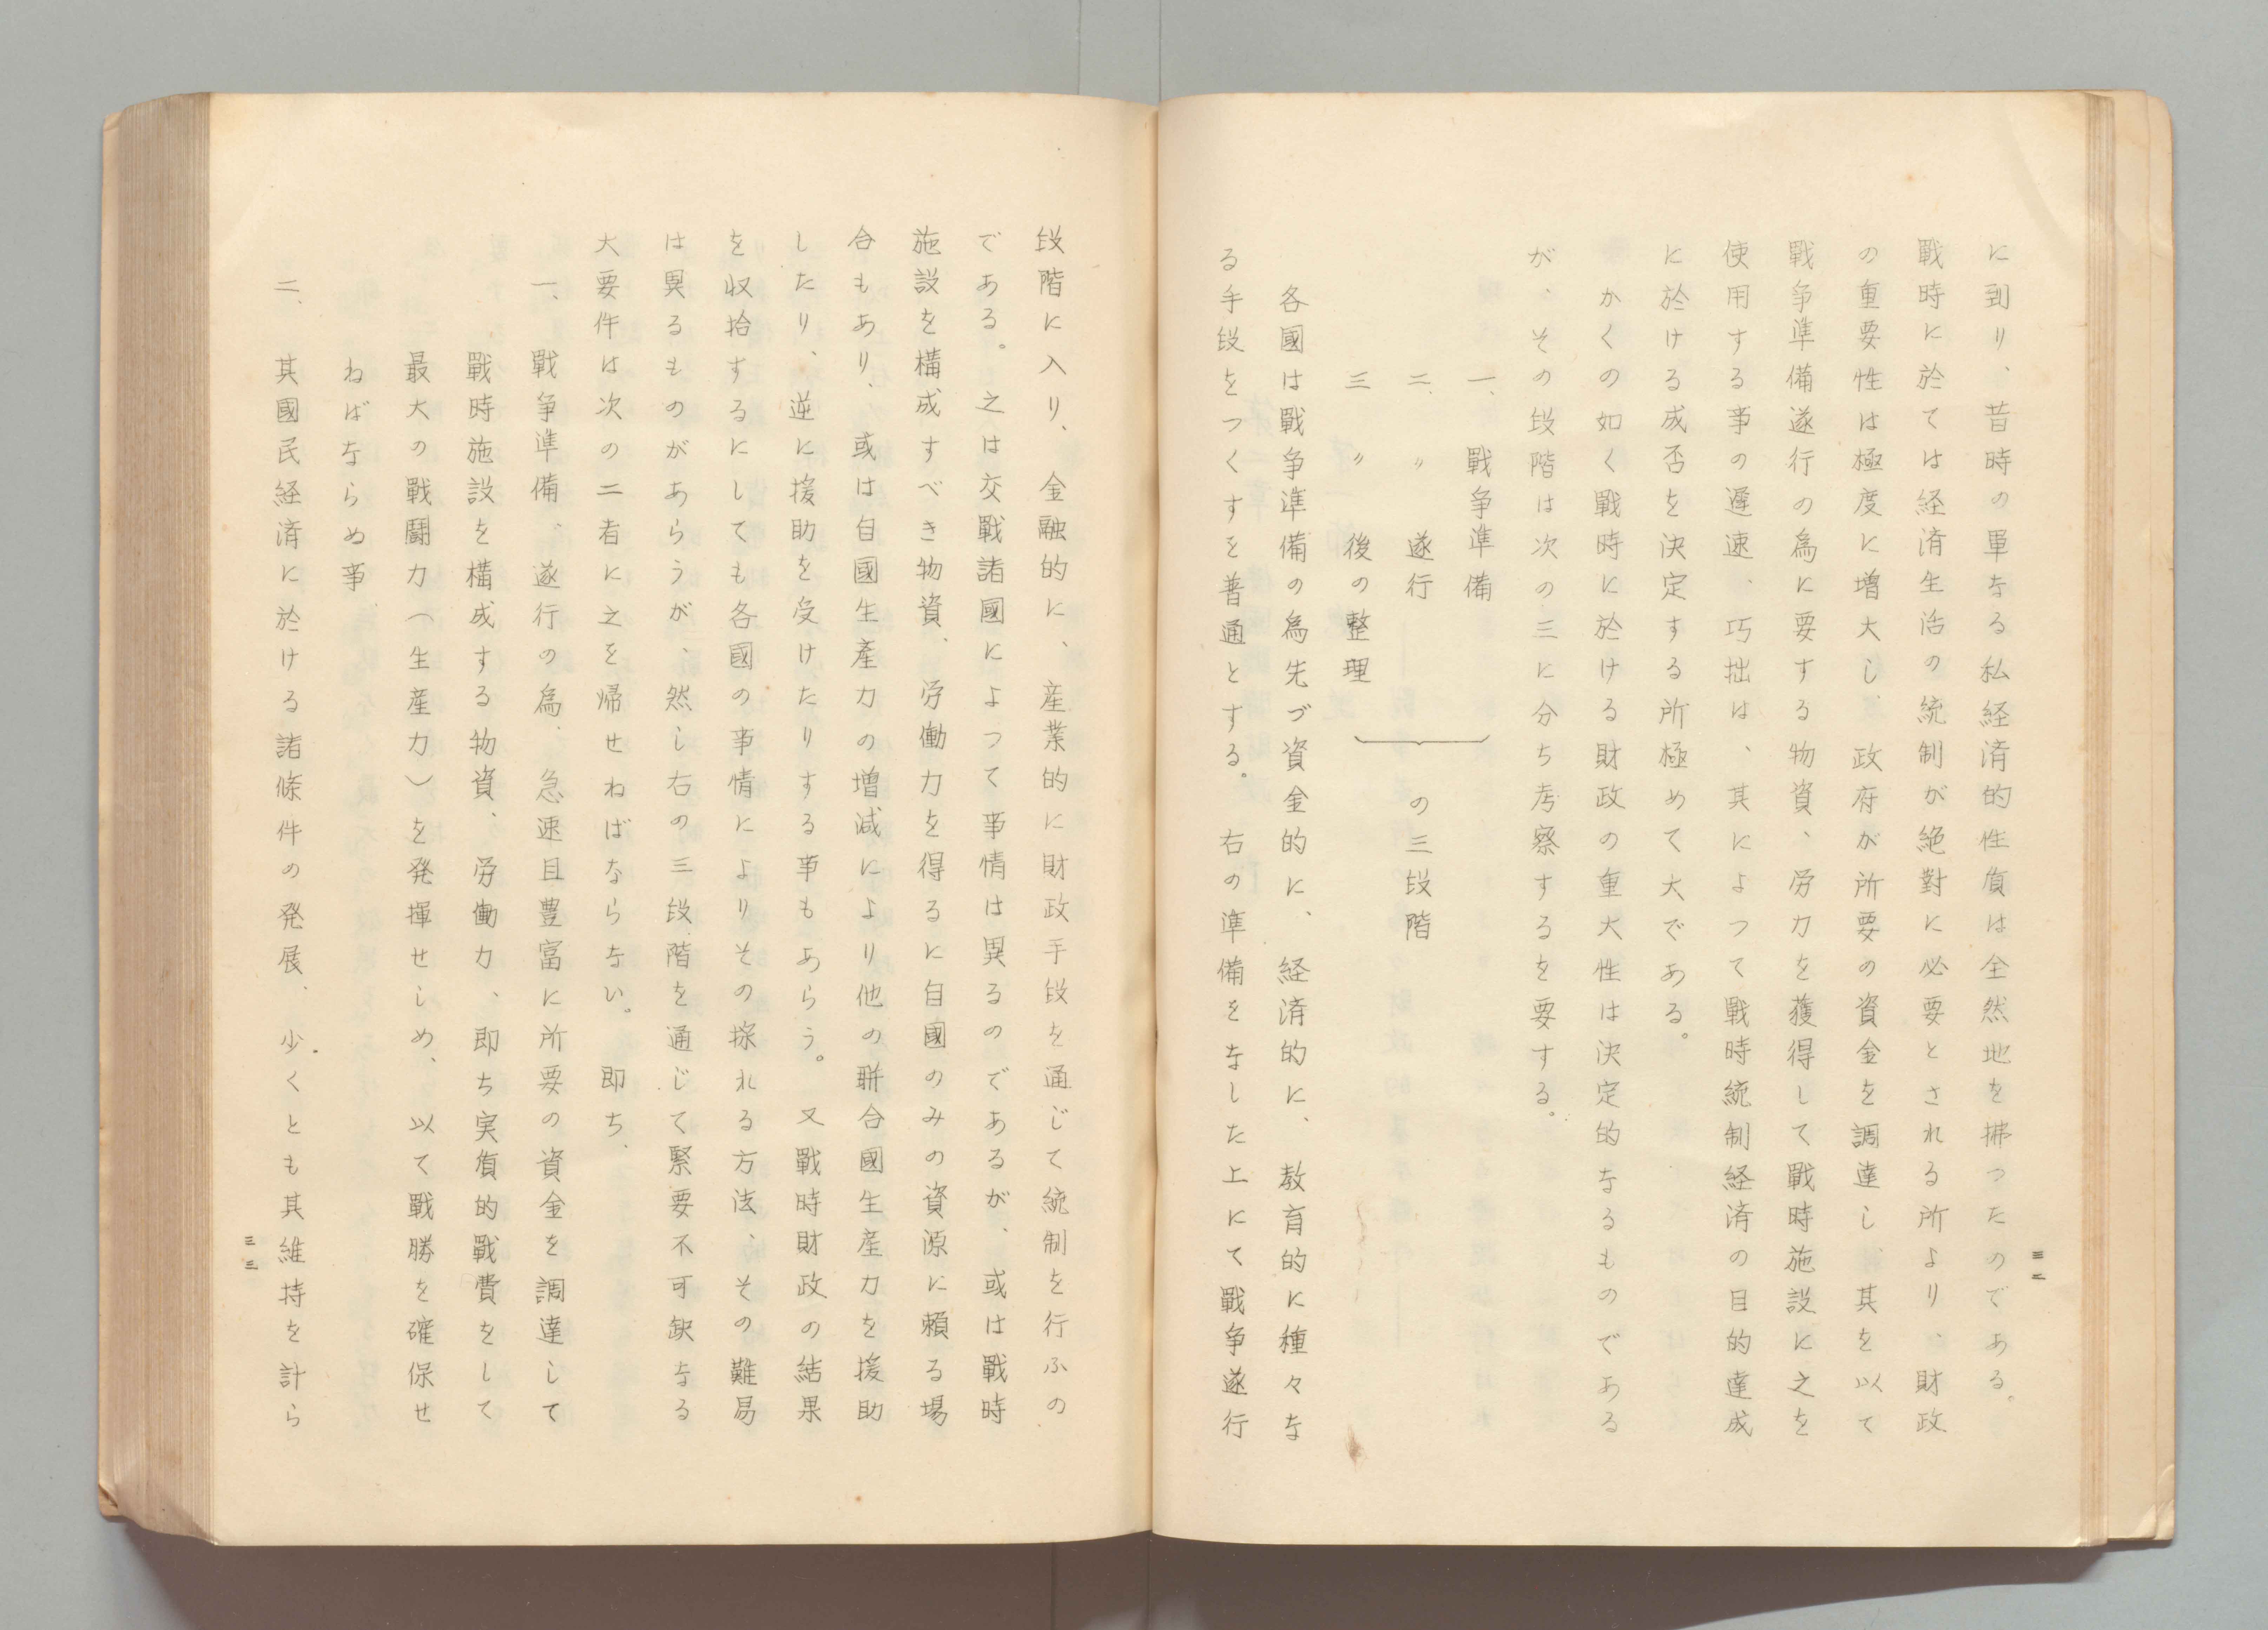 に到り、昔時の単なる私経済的性質は全然地を拂つたのである。
戦時に於ては経済生活の統制が絶對に必要とされる所より、財政
の重要性は極度に増大し、政府が所要の資金を調達し、其を以て
戦争準備遂行の為に要する物資、労力を獲得して戦時施設に之を
使用する事の遅速、巧拙は、其によつて戦時統制経済の目的達成
に於ける成否を決定する所極めて大である。
かくの如く戦時に於ける財政の重大性は決定的なるものである
が、その段階は次の三に分ち考察するを要する。
一、戦争準備
二、〃 遂行 の三段階
三 〃 後の整理
各國は戦争準備の為先づ資金的に、経済的に、教育的に種々な
る手段をつくすを普通とする。右の準備をなした上にて戦争遂行
三二
段階に入り、金融的に、産業的に財政手段を通じて統制を行ふの
である。之は交戦諸國によつて事情は異るのであるが、或は戦時
施設を構成すべき物資、労働力を得るに自國のみの資源に頼る場
合もあり、或は自國生産力の増減により他の聯合國生産力を援助
したり、逆に援助を受けたりする事もあらう。又戦時財政の結果
を収拾するにしても各國の事情によりその採れる方法、その難易
は異るものがあらうが、然し右の三段階を通じて緊要不可缺なる
大要件は次の二者に之を帰せねばならない。即ち、
一、戦争準備、遂行の為、急速且豊富に所要の資金を調達して
戦時施設を構成する物資、労働力、即ち実質的戦費をして
最大の戦闘力（生産力）を発揮せしめ、以て戦勝を確保せ
ねばならぬ事
二、其國民経済に於ける諸條件の発展、少くとも其維持を計ら
三三